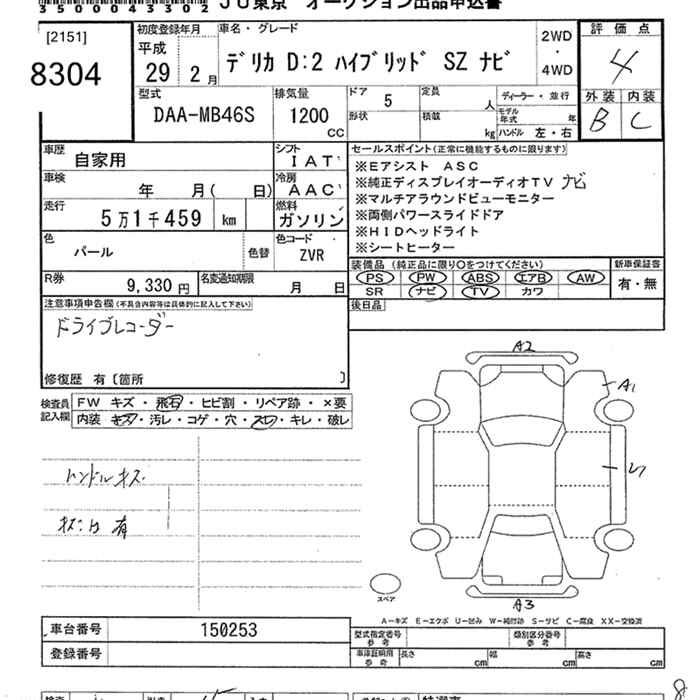 35000443302 JU東京 オークション出品申込書
[2151]
8304
初度登録年月
平成
29年 2月
車名・グレード
デリカ D:2 ハイブリッド SZ ナビ
2WD
・
4WD
評価点
4
外装 内装
B C
型式
DAA-MB46S
排気量
1200
CC
ドア 5
形状
定員 人
積載 kg
ディーラー・並行
モデル年式 年
ハンドル 左・右
車歴 自家用
シフト IAT
車検 年 月( 日)
冷房 AAC
走行 5万1千459 km
燃料 ガソリン
色 パール 色替
色コード ZVR
R券 9,330円
名変通知期限 月 日
セールスポイント(正常に機能するものに限ります)
※Eアシスト ASC
※純正ディスプレイオーディオTV ナビ
※マルチアラウンドビューモニター
※両側パワースライドドア
※HIDヘッドライト
※シートヒーター
装備品(純正品に限り○をつけてください) 新車保証書
PS PW ABS エアB AW
SR ナビ TV カワ
有・無
後日品
注意事項申告欄(不具合内容等は具体的に記入して下さい)
ドライブレコーダー
修復歴 有〔箇所 〕
検査員記入欄
FW キズ・飛石・ヒビ割・リペア跡・×要
内装 キズ・汚レ・コゲ・穴・スレ・キレ・破レ
ハンドルキズ
有
A2
A1
A3
スペア
A-キズ E-エクボ U-凹み W-補修跡 S-サビ C-腐食 XX-交換済
車台番号 150253
登録番号
型式指定番号 参考
類別区分番号 参考
車庫証明用 参考
長さ cm 幅 cm 高さ cm